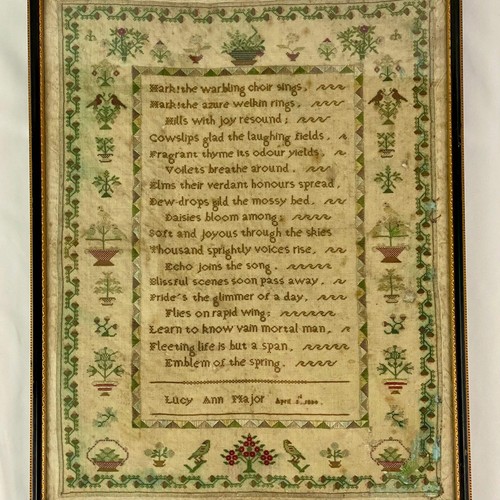 Hark! the warbling choir sings,
Hark! the azure welkin rings,
Hills with joy resound;
Cowslips glad the laughing fields,
Fragrant thyme its odour yields,
Voilets breathe around.
Elms their verdant honours spread,
Dew-drops gild the mossy bed.
Daisies bloom among;
Soft and joyous through the skies
Thousand sprightly voices rise,
Echo joins the song.
Blissful scenes soon pass away,
Pride's the glimmer of a day,
Flies on rapid wing:
Learn to know vain mortal man,
Fleeting life is but a span,
Emblem of the spring.
Lucy Ann Major April